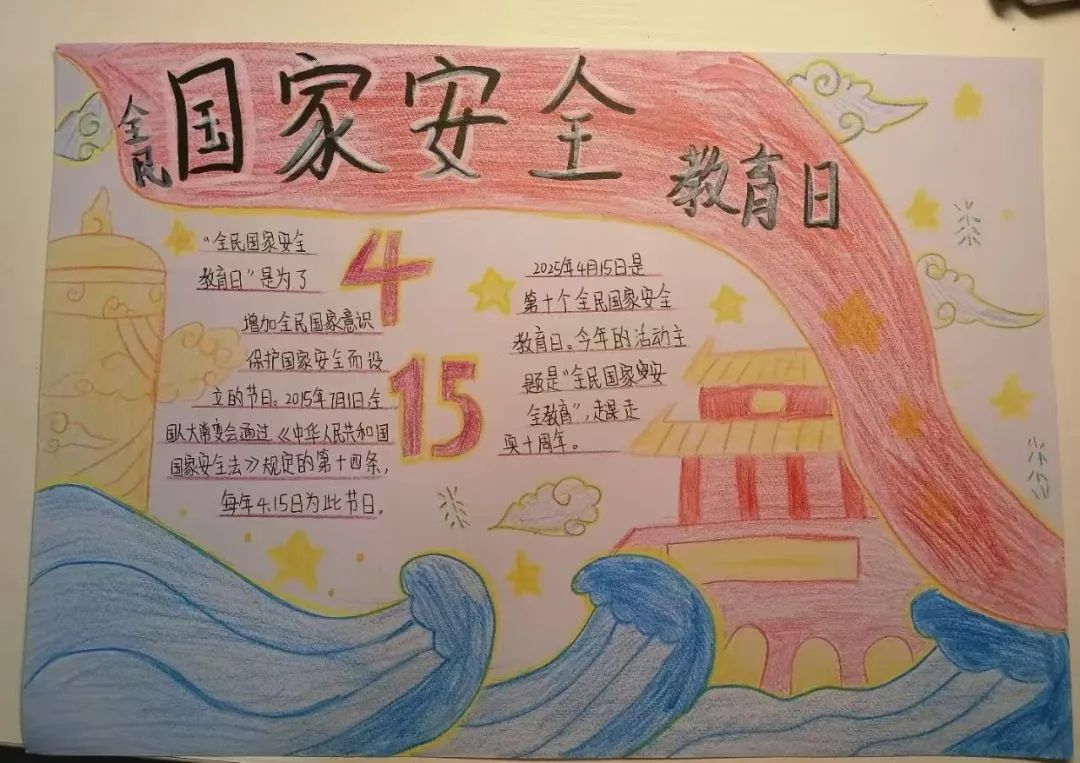 全民
国家安全
教育日
"全民国家安全
教育日"是为了
增加全民国家意识
保护国家安全而设
立的节日。2015年7月1日,全
国人大常委会通过《中华人民共和国
国家安全法》规定的第十四条,
每年4.15日为此节日。
4
15
2025年4月15日是
第十个全民国家安全
教育日。今年的活动主
题是"全民国家安
全教育",走深走
实十周年。